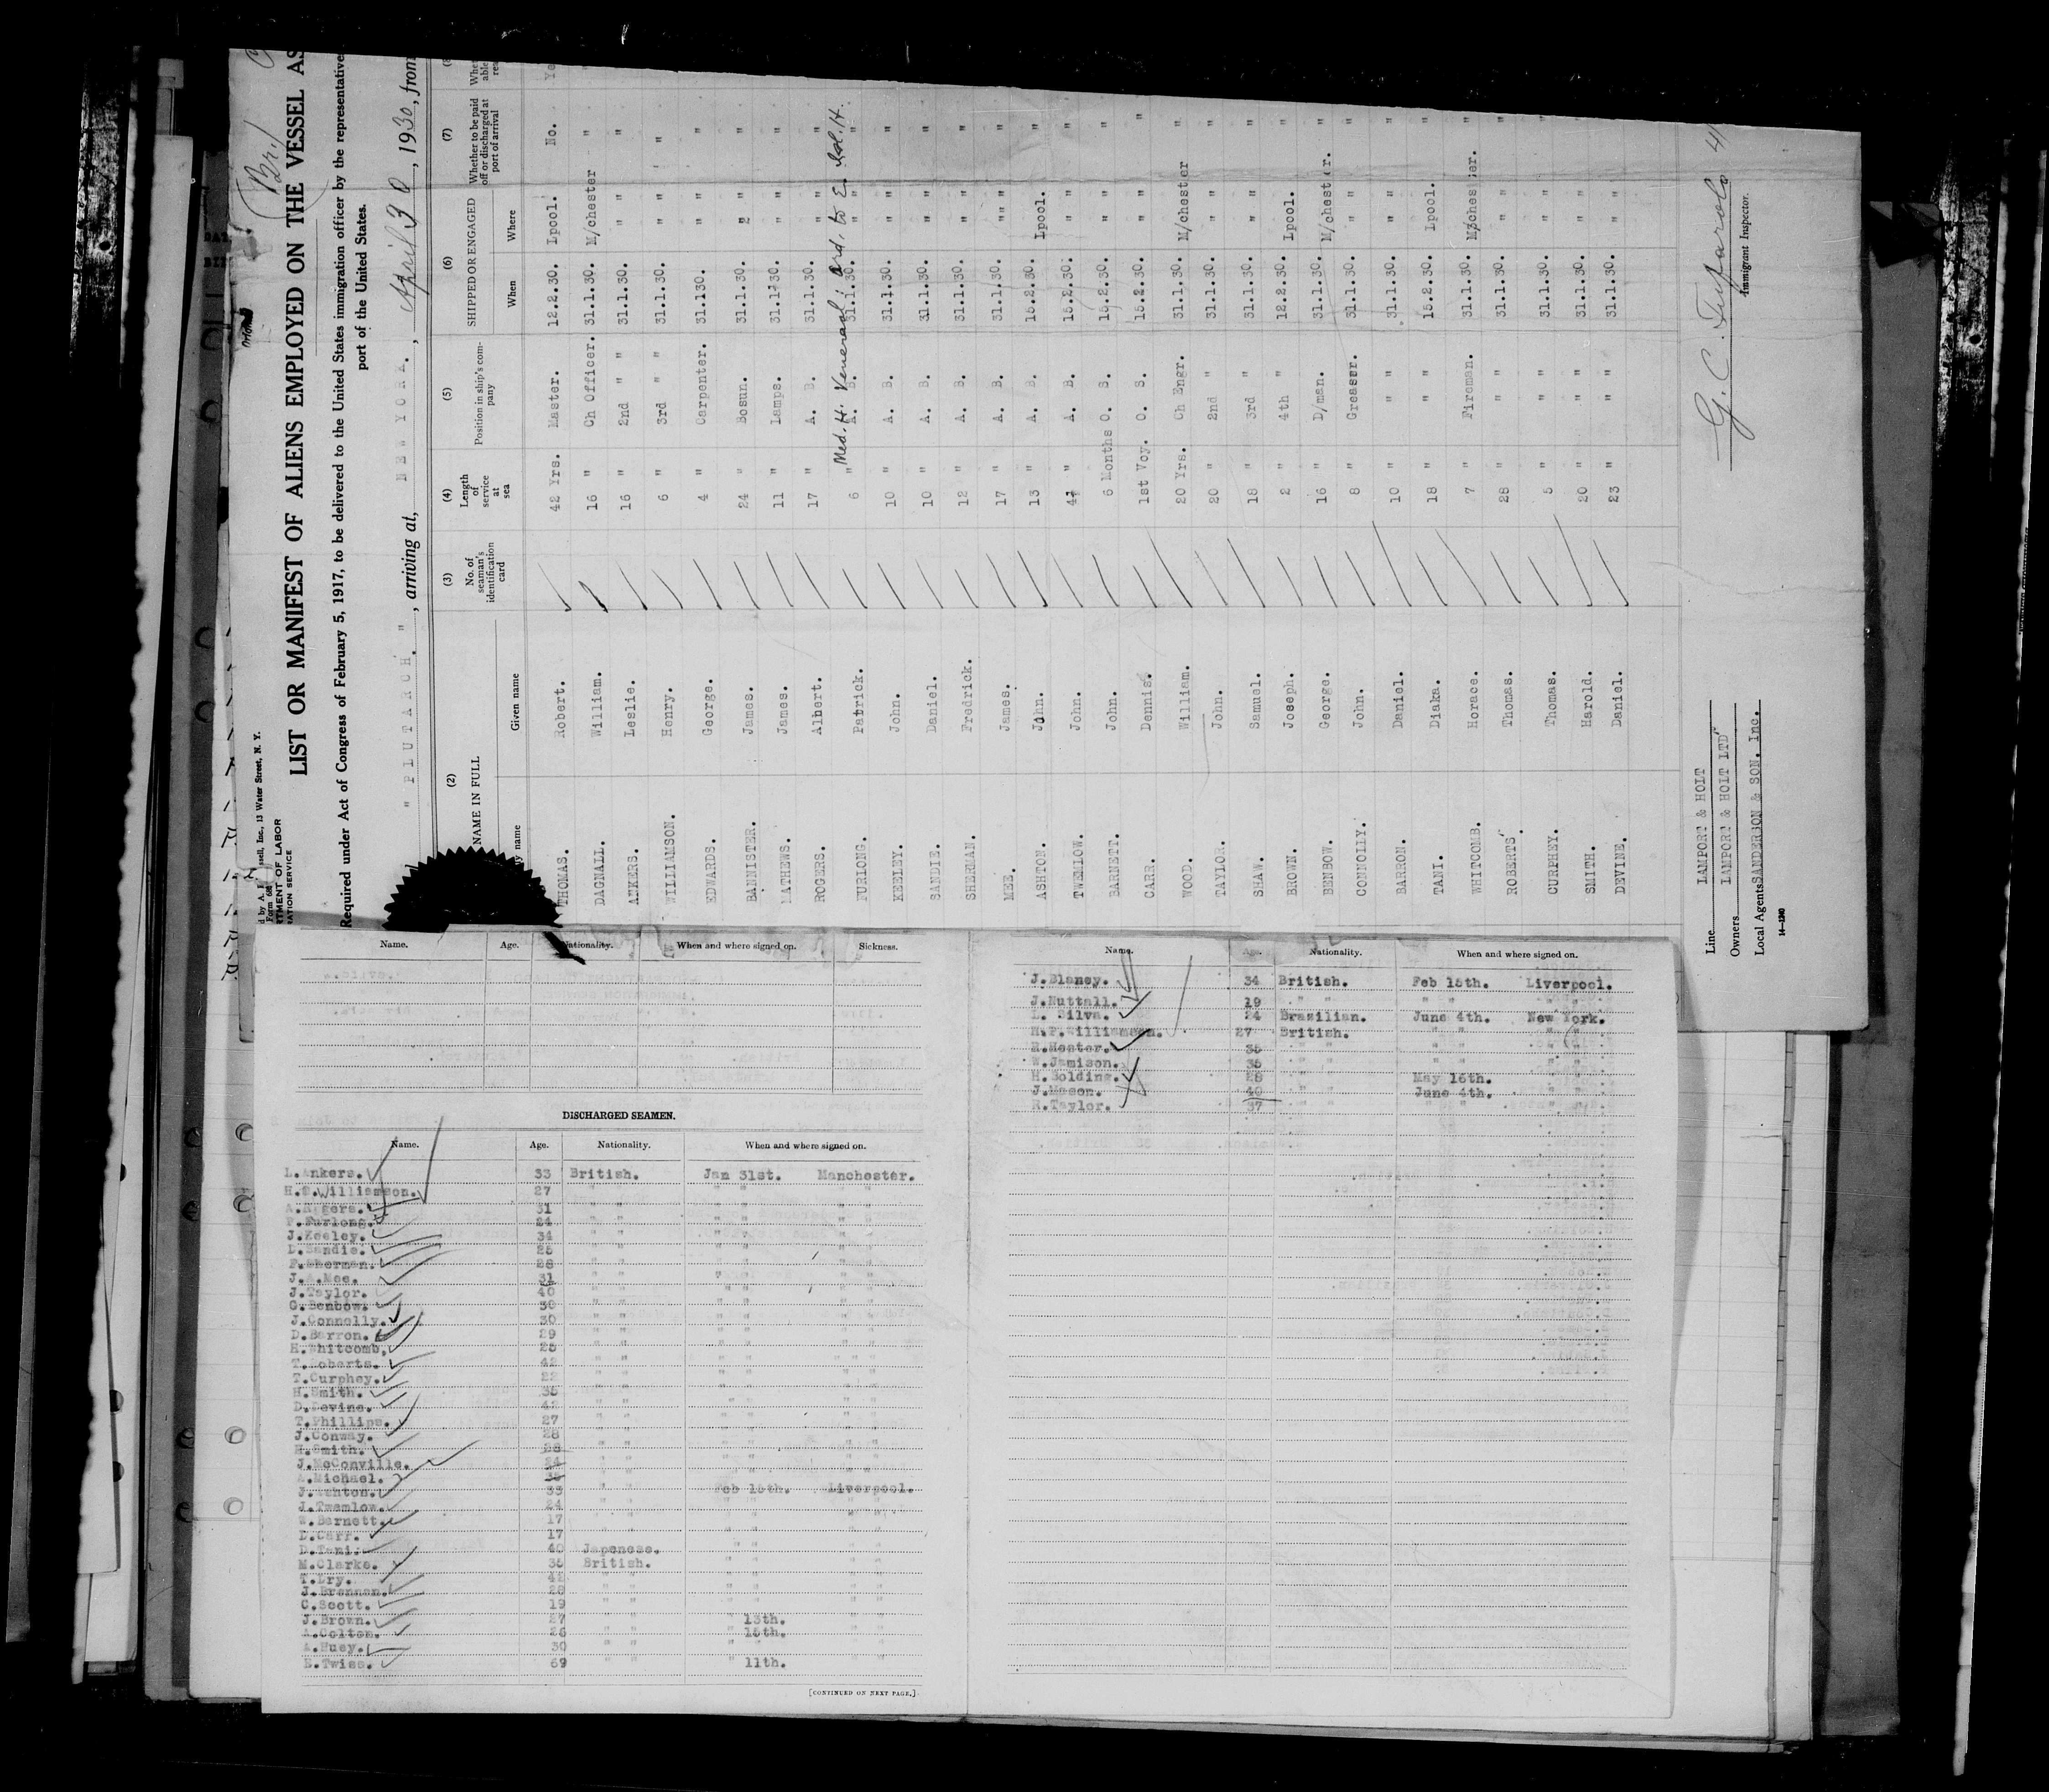 Br/
d by A. R ssell, Inc., 13 Water Street, N. Y.
Form 680
RTMENT OF LABOR
RATION SERVICE
LIST OR MANIFEST OF ALIENS EMPLOYED ON THE VESSEL AS
Required under Act of Congress of February 5, 1917, to be delivered to the United States immigration officer by the representative
port of the United States.
" PLUTARCH. ", arriving at, NEW YORK. , April 30, 1930, from
(2) (3) (4) (5) (6) (7)
NAME IN FULL No. of seaman's identification card Length of service at sea Position in ship's company SHIPPED OR ENGAGED Whether to be paid off or discharged at port of arrival
y name Given name When Where
THOMAS. Robert. 42 Yrs. Master. 12.2.30. Lpool. No. Ye
DAGNALL. William. 16 " Ch Officer. 31.1.30. M/chester "
ANKERS. Leslie. 16 " 2nd " 31.1.30. " " "
WILLIAMSON. Henry. 6 " 3rd " 31.1.30. " " "
EDWARDS. George. 4 " Carpenter. 31.130. " " "
BANNISTER. James. 24 " Bosun. 31.1.30. " "
MATHEWS. James. 11 " Lamps. 31.1.30. " " "
ROGERS. Albert. 17 " A. B. 31.1.30. " " "
Med. H. Venereal; ord. to E. Isl. H.
FURLONG. Patrick. 6 " A. B. 31.1.30. " " "
KEELEY. John. 10 " A. B. 31.1.30. " " "
SANDIE. Daniel. 10 " A. B. 31.1.30. " " "
SHERMAN. Fredrick. 12 " A. B. 31.1.30. " " "
MEE. James. 17 " A. B. 31.1.30. "" "
ASHTON. John. 13 " A. B. 15.2.30. Lpool. "
TWEMLOW. John. " A. B. 15.2.30. " " "
BARNETT. John. 6 Months O. S. 15.2.30. " " "
CARR. Dennis. 1st Voy. O. S. 15.2.30. " " "
WOOD. William. 20 Yrs. Ch Engr. 31.1.30. M/chester "
TAYLOR. John. 20 " 2nd " 31.1.30. " " "
SHAW. Samuel. 18 " 3rd " 31.1.30. " " "
BROWN. Joseph. 2 " 4th " 12.2.30. Lpool. "
BENBOW. George. 16 " D/man. 31.1.30. M/chester. "
CONNOLLY. John. 8 " Greaser. 31.1.30. " " "
BARRON. Daniel. 10 " " " 31.1.30. " " "
TANI. Diaka. 18 " " " 15.2.30. Lpool. "
WHITCOMB. Horace. 7 " Fireman. 31.1.30. M/chester. "
ROBERTS. Thomas. 28 " " " 31.1.30. " " "
CURPHEY. Thomas. 5 " " " 31.1.30. " " "
SMITH. Harold. 20 " " " 31.1.30. " " "
DEVINE. Daniel. 23 " " " 31.1.30. " " "
Line LAMPORT & HOLT
Owners LAMPORT & HOLT LTD"
Local Agents SANDERSON & SON. Inc.
Immigrant Inspector.
14—1240
Name. Age. Nationality. When and where signed on. Sickness.
DISCHARGED SEAMEN.
Name. Age. Nationality. When and where signed on.
L.Ankers. 33 British. Jan 31st. Manchester.
H.P.Williamson. 27 " " " " "
A.Rogers. 31 " " " " " "
P.Furlong. 24 " " " " " "
J.Keeley. 34 " " " " " "
D.Sandie. 25 " " " " " "
F.Sherman. 28 " " " " " "
J.A.Mee. 31 " " " " " "
J.Taylor. 40 " " " " " "
G.Benbow. 30 " " " " " "
J.Connolly. 30 " " " " " "
D.Barron. 29 " " " " " "
H.Whitcomb, 25 " " " " " "
T.Roberts. 42 " " " " " "
T.Curphey. 22 " " " " " "
H.Smith. 35 " " " " " "
D.Devine. 42 " " " " " "
T.Phillips. 27 " " " " " "
J.Conway. 28 " " " " " "
H.Smith. " " " " " "
J.McConville. 24 " " " " " "
A.Michael. " " " " " "
J.Ashton. 33 " " Feb 15th. Liverpool.
J.Twemlow. 24 " " " " " "
W.Barnett. 17 " " " " " "
D.Carr. 17 " " " " " "
D.Tani. 40 Japenese. " " " "
M.Clarke. 35 British. " " " "
T.Dry. 42 " " " " " "
J.Brennan. 28 " " " " " "
C.Scott. 19 " " " " " "
J.Brown. 27 " " " 13th. " "
A.Colton. 26 " " " 15th. " "
A.Huey. 30 " " " " " "
E.Twiss. 69 " " " 11th. " "
[CONTINUED ON NEXT PAGE.]
Name. Age. Nationality. When and where signed on.
J.Blaney. 34 British. Feb 15th. Liverpool.
J.Nuttall. 19 " " " " " "
L. Silva. 24 Brazilian. June 4th. New York.
H.P.Williamson. 27 British. " " " "
R.Hester. 35 " " " " " "
W.Jamison. 35 " " " " " "
H.Bolding. 28 " " May 16th. " "
J.Mason. 40 " " June 4th. " "
R.Taylor. 37 " " " " " "